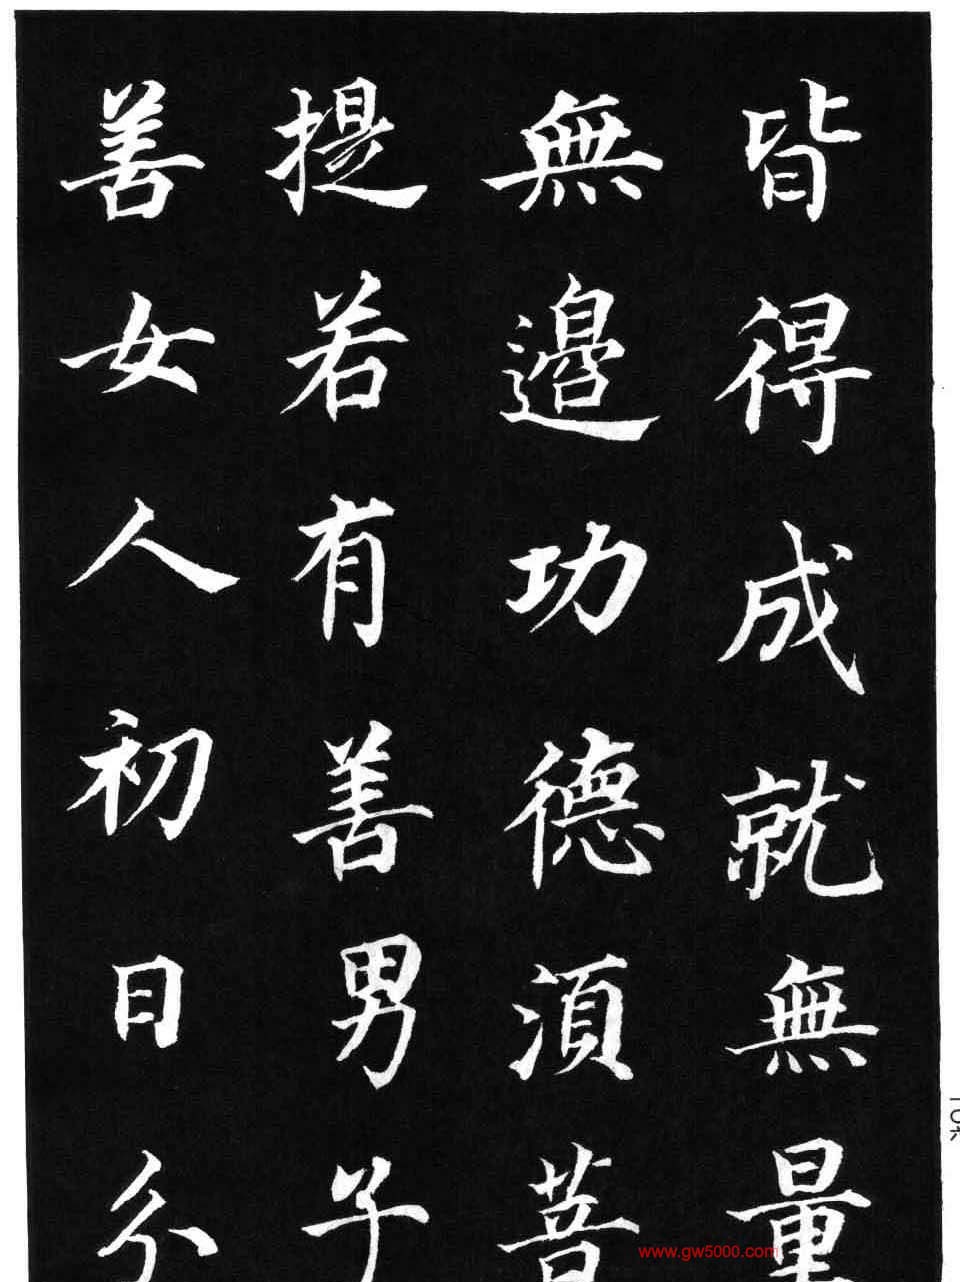 皆得成就無量
無邊功德須菩
提若有善男子
善女人初日分
www.gw5000.com